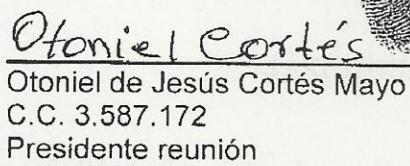 Otoniel Cortés
Otoniel de Jesús Cortés Mayo
C.C. 3.587.172
Presidente reunión